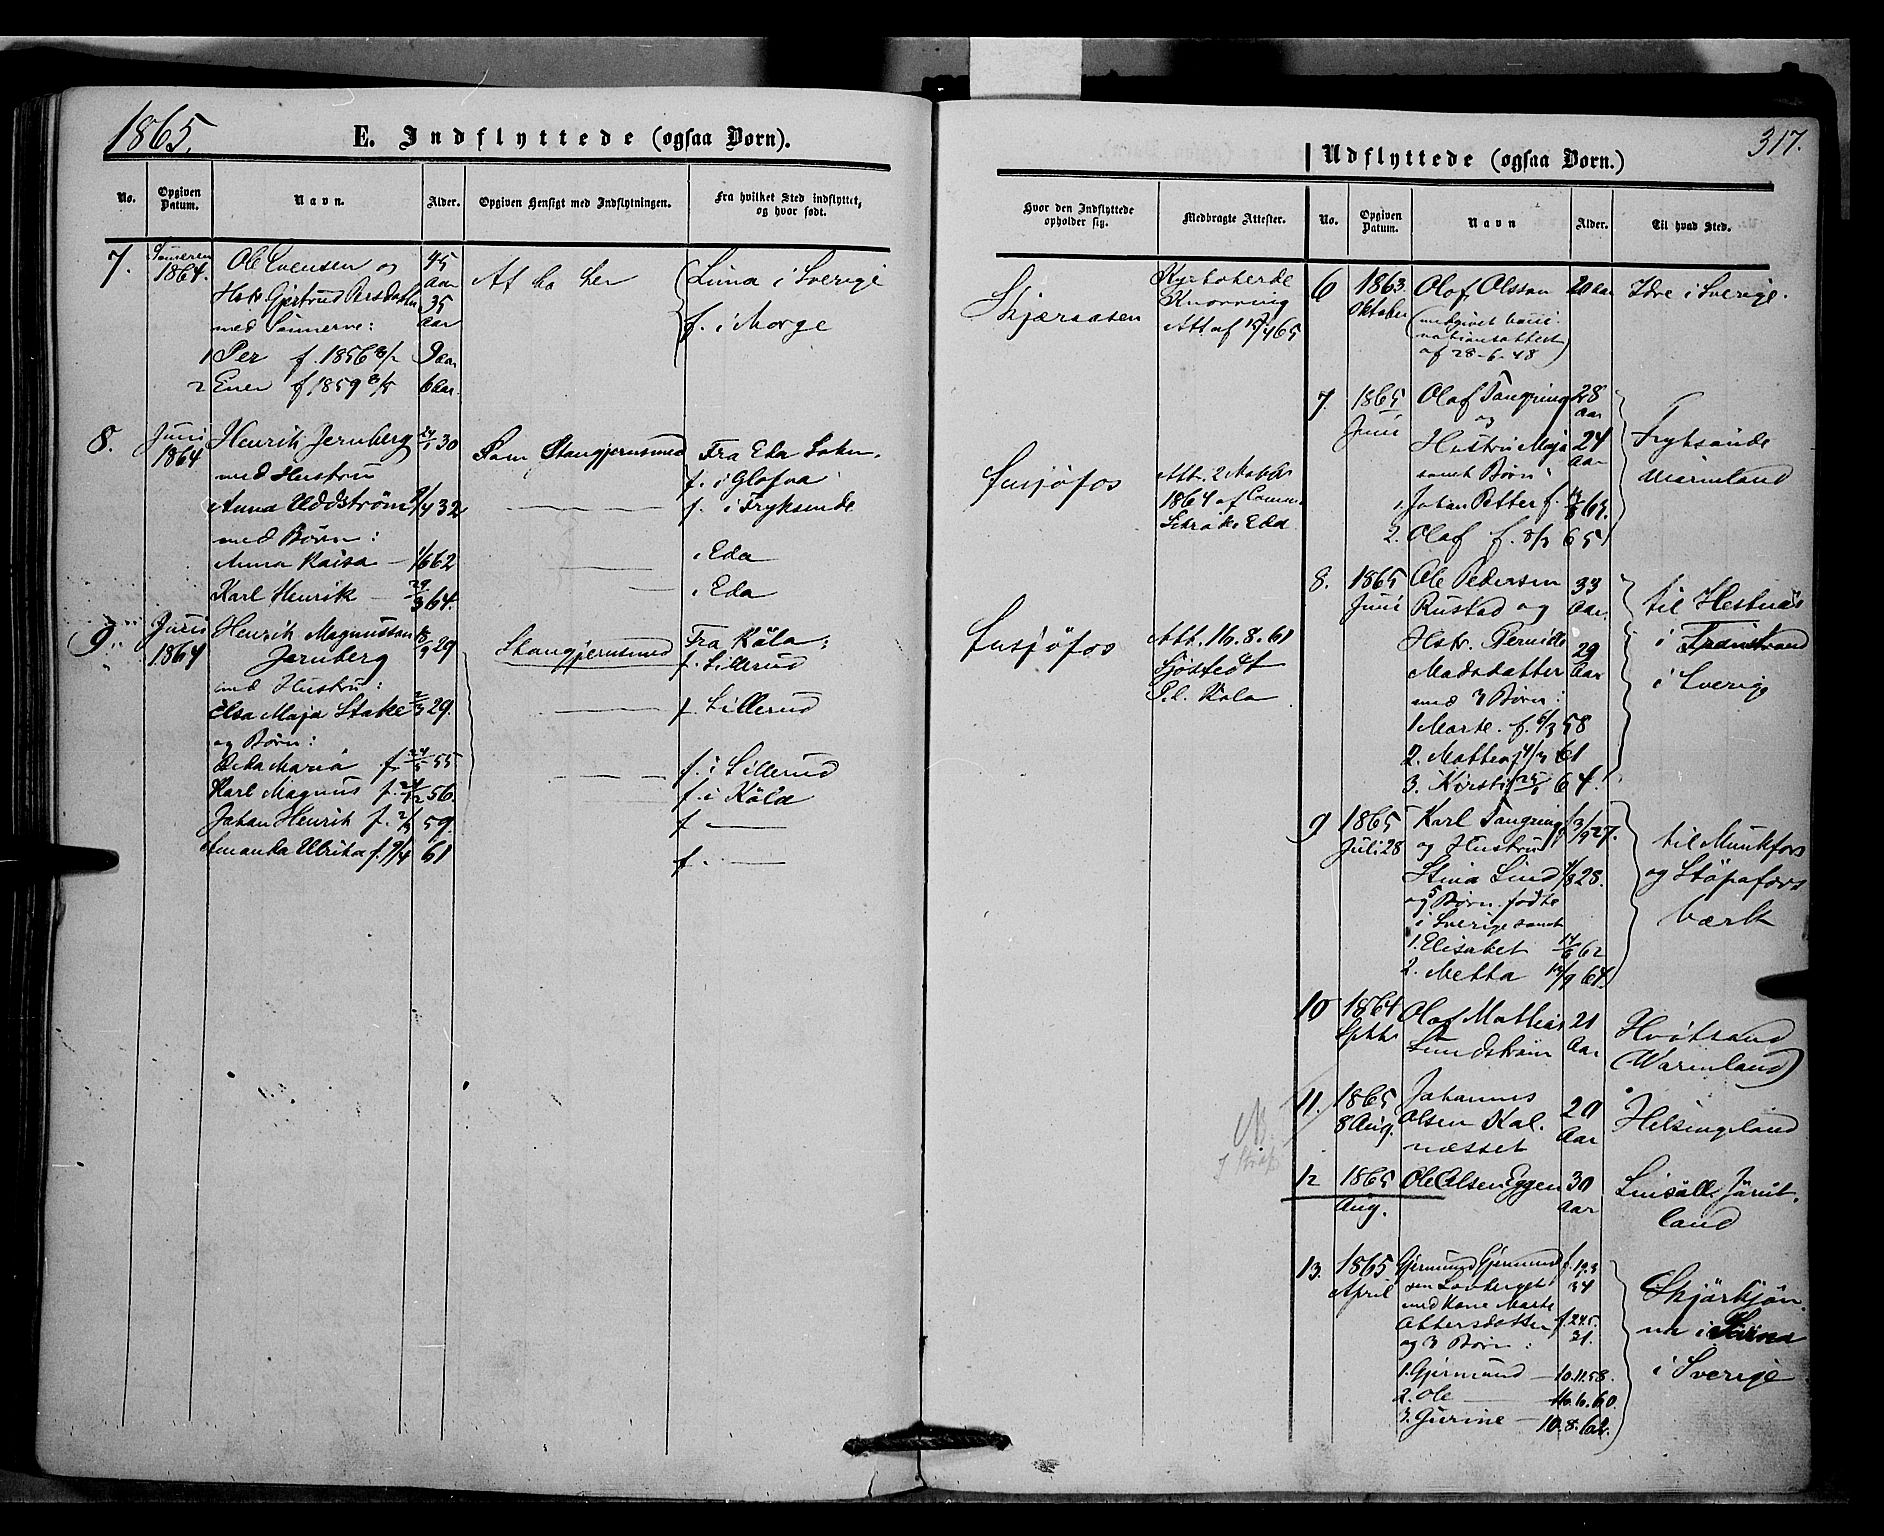 1865.
E. Indflyttede (ogsaa Børn).
No.
Opgiven Datum.
Navn.
Alder.
Opgiven Hensigt med Indflytningen.
Fra hvilket Sted indflyttet,
og hvor født.
7.
1864.
Ole Svensen og
45
Aar
At bo her
Lima i Sverige
Hstr. Gjertrud Persdatter
35
Aar
f. i Norge
med Sønnerne:
1 Per f. 1856 9 aar
2 Ener f. 1859 6 Aar.
8.
Juni
1864
Henrik Jernberg 30
Som Stangjernsmed
Fra Eda Sokn.
med Hustru
f. i Glafva
Anna Uddstrøm 9/4 32
f. i Fryksende
med Børn:
Anna Kaisa — 1/6 62
i Eda
Karl Henrik — 29/3 64.
i Eda
9.
Juni
1864
Henrik Magnusson 18/9 29
Jernberg
Stangjernsmed
Fra Köla;
f. Lillerud
med Hustru:
Elsa Maja Stake 2/3 29.
f. Lillerud
og Børn:
Maria f. 24/5 55
f. i Lillerud
Karl Magnus f. 24/12 56.
f. i Köla
Johan Henrik f. 59.
f —
Amanda Ulrika f. 9/4 61
f. —
317.
Udflyttede (ogsaa Børn.)
Hvor den Indflyttede
opholder sig.
Medbragte Attester.
No.
Opgiven
Datum.
Navn
Alder.
Til hvad Sted.
Skjæraasen
Kyrkoherde
Knorring
Att af 17/4 65
6
1863
Oktober
Olof Olsson
20 aar
Idre i Sverige.
af 28-6-48)
7.
1865
Juni
Olof Tangring
28
Aar
og
Hustru Maja
24
Aar
samt Børn
1. Johan Petter f. 63.
2. Olof f. 8/3 65
Fryksände
Wärmland
Fusjøfos
Att. 2 Novbr.
1864 af Comm.
Eda
8.
1865
Juni
Ole Pedersen
Rustad og
33
Aar.
Hstr. Pernille
Madsdatter
29
Aar
med 3 Børn:
1 Marte. f. 6/3 58
2. Mathea f 4/3 61
3. Kirsti 64.
til Hestnäs
i Transtrand
i Sverige
Fusjøfos
Att. 16.8.61
Sjöstedt
P.l. Köla
9
1865
Juli 28
Karl Tangring f. 3/9 27.
og Hustru
Stina Lind 1/8 28.
og Børn fødte
i Sverige samt
1. Elisabet 14/6 62
2. Metta 19/9 64.
til Munkfors
og Stöpafors
værk
10
1864
Septbr
Olof Mathias
Lundstrøm
21
Aar
Hvitsand
(Warmland)
11.
1865
8 Aug.
Johannes
Olsen Kal.
næsset
20
Aar
Helsingeland
12
1865
Aug.
Ole Olsen Eggen
30
Aar
Linsäll, Jämt.
land
13.
1865
April
Gjermund Gjermund
sen Lovberget
f. 19.3
34
med Kone Marte
Ottersdatter
f. 24.5.
31.
og 3 Børn:
1. Gjermund — 10.11.58.
2. Ole — 16.6.60.
3. Gurine — 10.8.62.
Skjärkjön.
nn i Särna
i Sverige